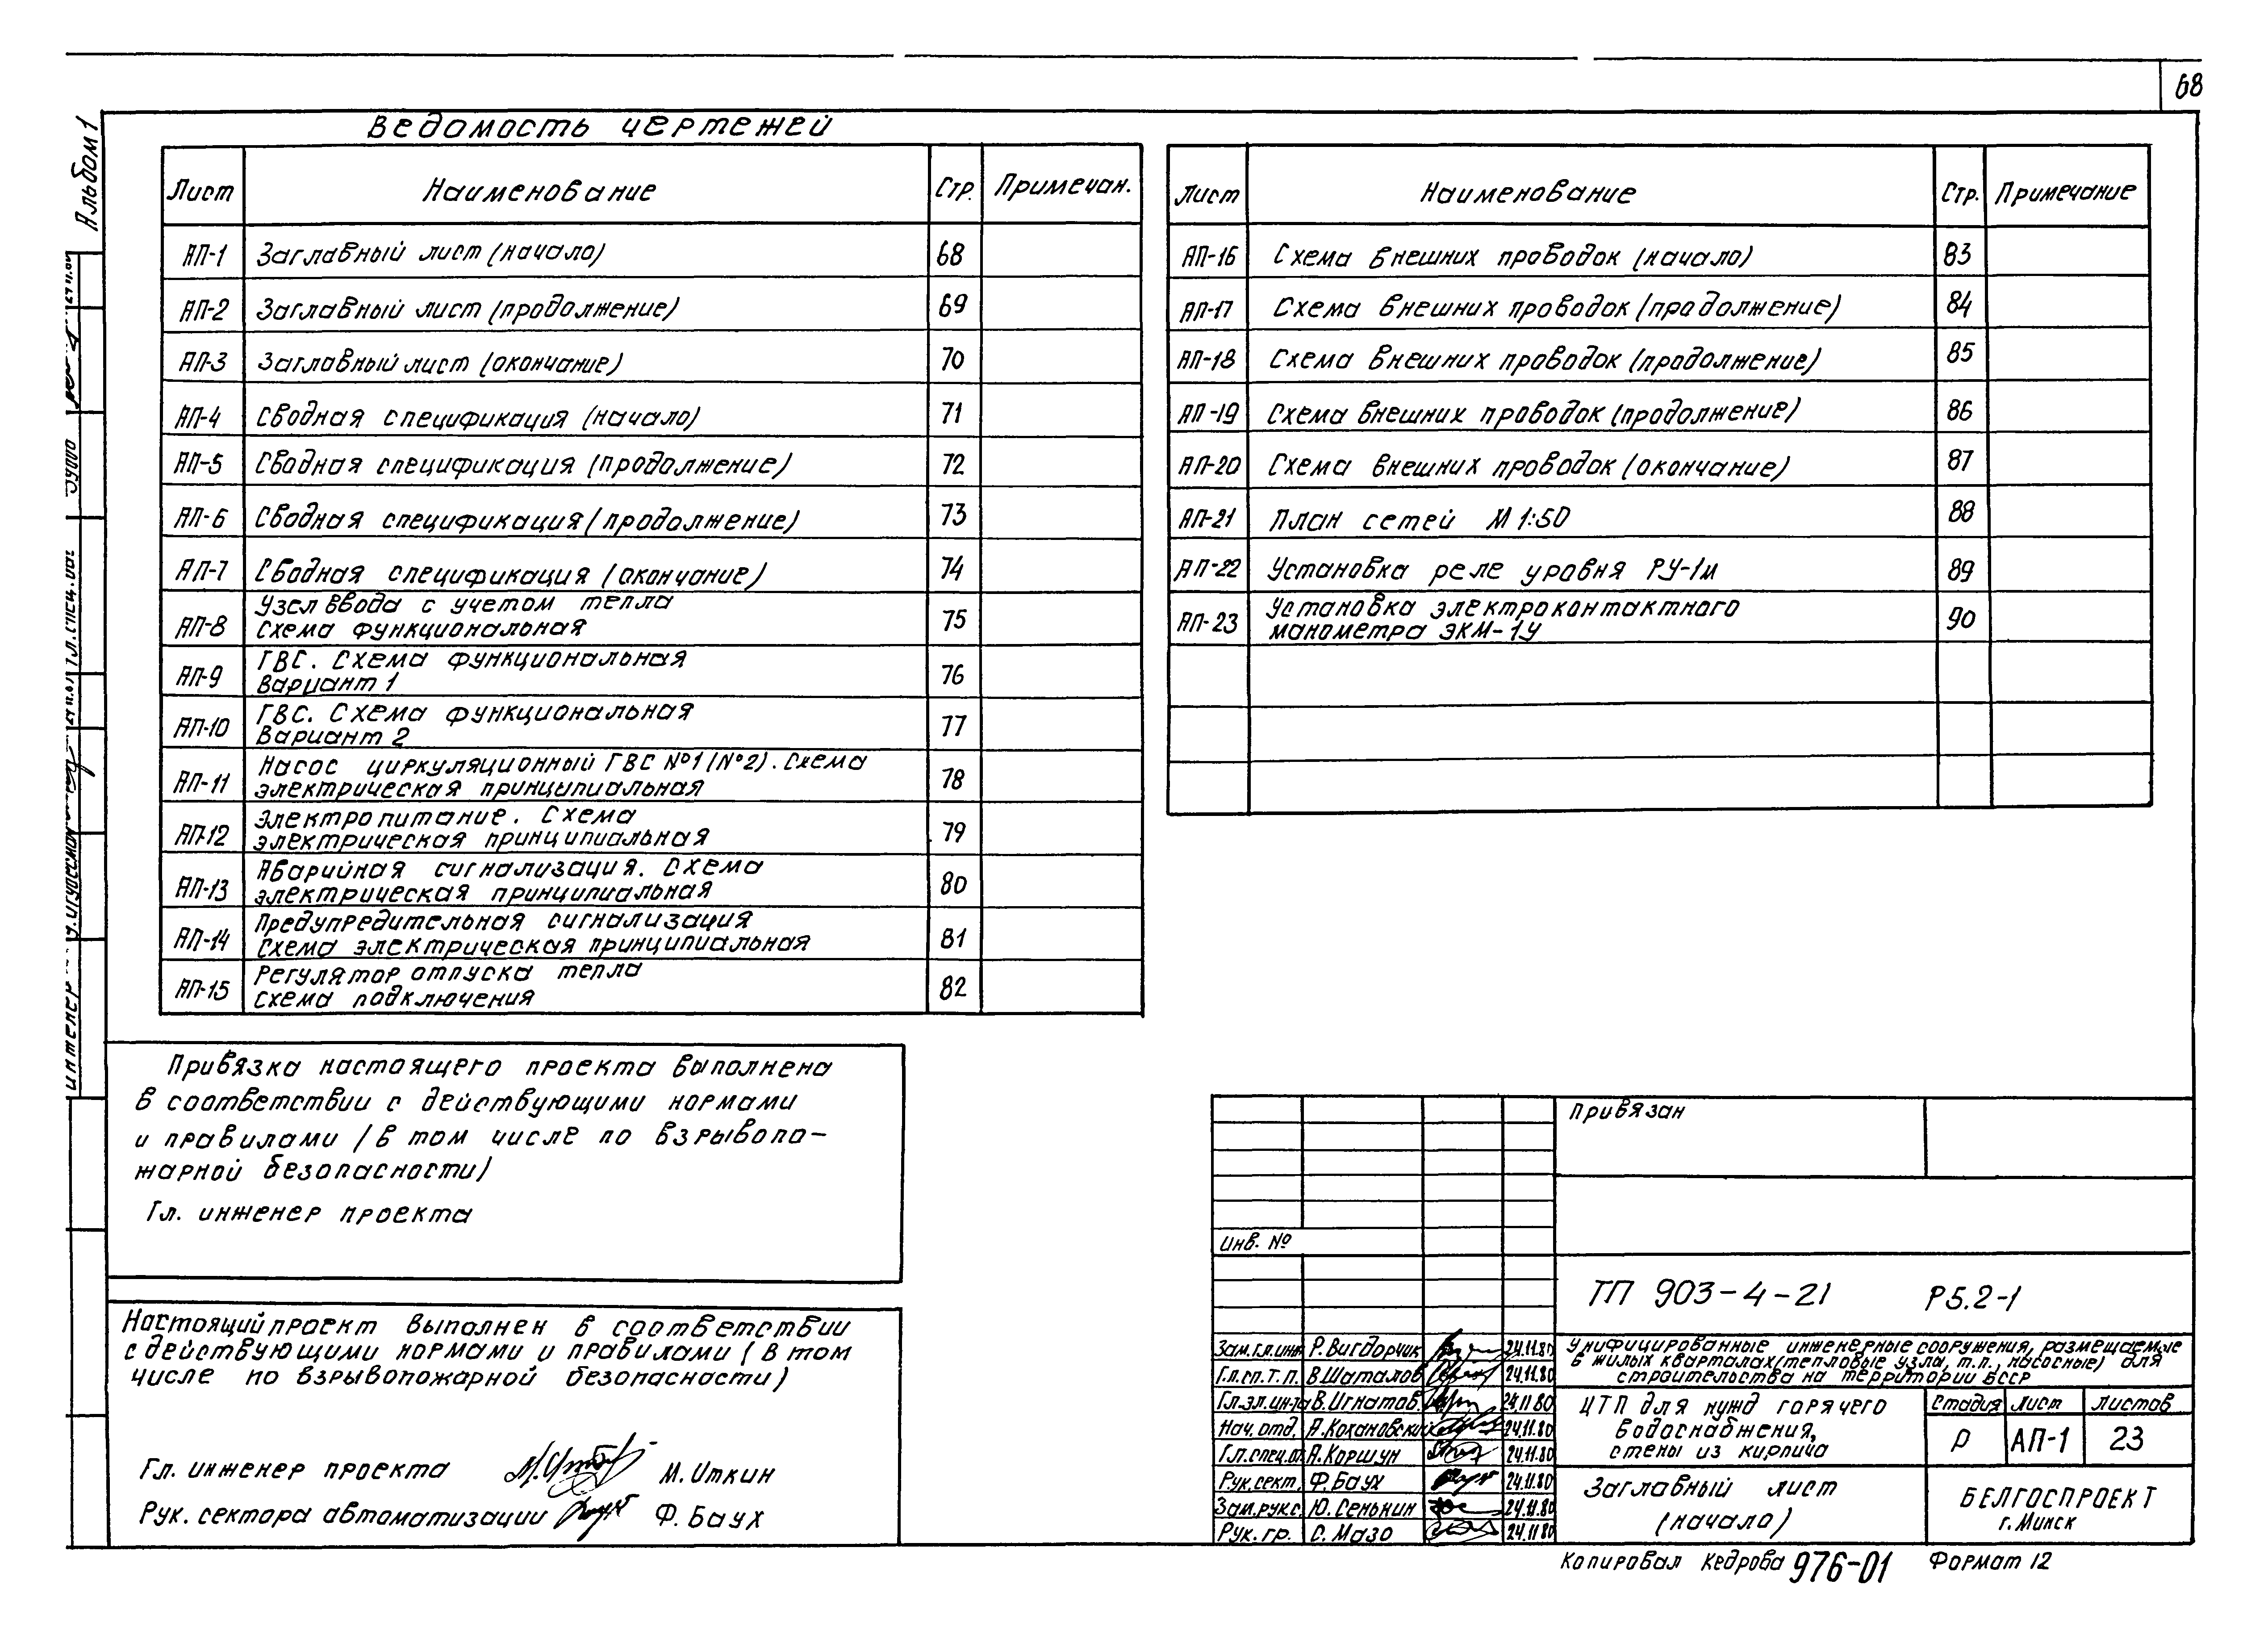 68
Альбом 1
Ведомость чертежей
Лист Наименование Стр. Примечан.
АП-1 Заглавный лист (начало) 68
АП-2 Заглавный лист (продолжение) 69
АП-3 Заглавный лист (окончание) 70
АП-4 Сводная спецификация (начало) 71
АП-5 Сводная спецификация (продолжение) 72
АП-6 Сводная спецификация (продолжение) 73
АП-7 Сводная спецификация (окончание) 74
АП-8 Узел ввода с учетом тепла
схема функциональная 75
АП-9 ГВС. Схема функциональная
Вариант 1 76
АП-10 ГВС. Схема функциональная
Вариант 2 77
АП-11 Насос циркуляционный ГВС №1 (№2). Схема
электрическая принципиальная 78
АП-12 Электропитание. Схема
электрическая принципиальная 79
АП-13 Аварийная сигнализация. Схема
электрическая принципиальная 80
АП-14 Предупредительная сигнализация
Схема электрическая принципиальная 81
АП-15 Регулятор отпуска тепла
схема подключения 82
Лист Наименование Стр. Примечание
АП-16 Схема внешних проводок (начало) 83
АП-17 Схема внешних проводок (продолжение) 84
АП-18 Схема внешних проводок (продолжение) 85
АП-19 Схема внешних проводок (продолжение) 86
АП-20 Схема внешних проводок (окончание) 87
АП-21 План сетей М 1:50 88
АП-22 Установка реле уровня РУ-1м 89
АП-23 Установка электроконтактного
манометра ЭКМ-1У 90
Привязка настоящего проекта выполнена
в соответствии с действующими нормами
и правилами (в том числе по взрывопо-
жарной безопасности)
Гл. инженер проекта
Настоящий проект выполнен в соответствии
с действующими нормами и правилами (в том
числе по взрывопожарной безопасности)
Гл. инженер проекта М. Иткин
Рук. сектора автоматизации Ф. Баух
Привязан
Инв. №
ТП 903-4-21 Р5.2-1
Зам.гл.инж Р. Вигдорчик 24.11.80
Гл.сп.т.п. В. Шаталов 24.11.80
Гл.эл.ин-та В. Игнатов. 24.11.80
Нач. отд. А. Кохановский 24.11.80
Гл.спец.от А. Коршун 24.11.80
Рук.сект. Ф. Баух 24.11.80
Зам.рук.с. Ю. Сенькин 24.11.80
Рук. гр. С. Мазо 24.11.80
Унифицированные инженерные сооружения, размещаемые
в жилых кварталах (тепловые узлы, т.п., насосные) для
строительства на территории БССР
ЦТП для нужд горячего
водоснабжения,
стены из кирпича
Стадия Лист Листов
Р АП-1 23
Заглавный лист
(начало)
БЕЛГОСПРОЕКТ
г. Минск
Копировал Кедрова 976-01 Формат 12